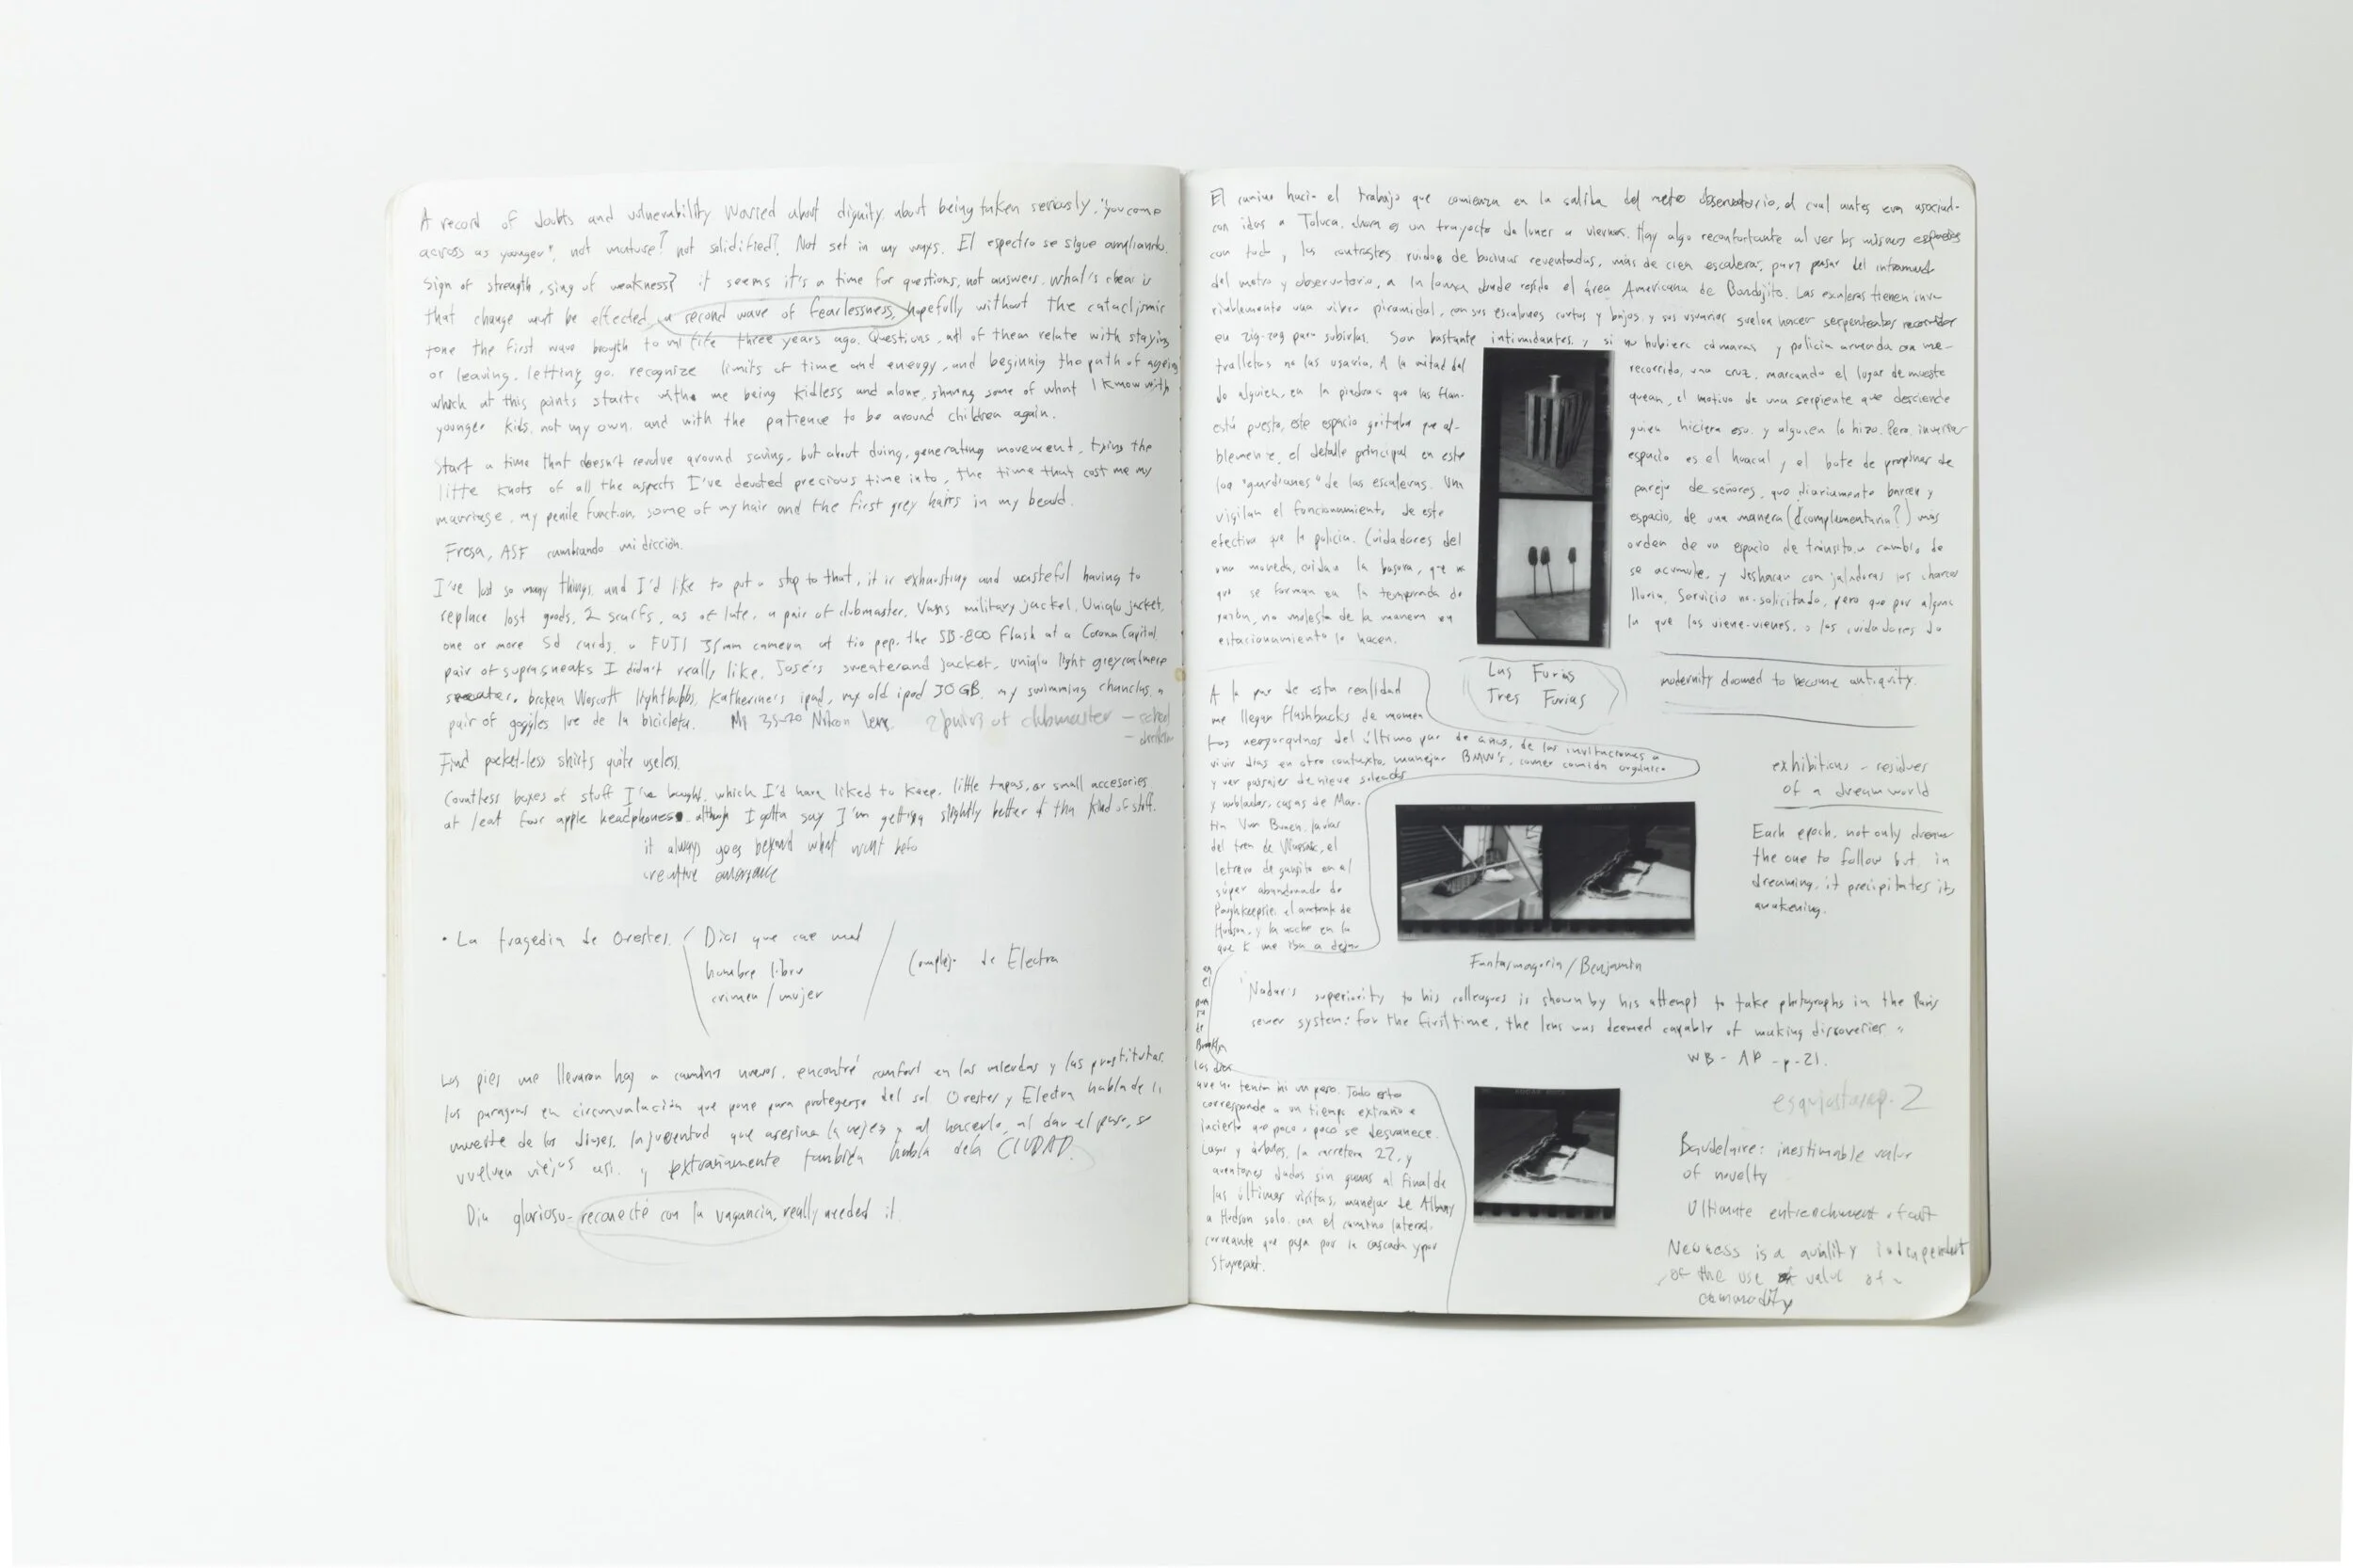 A record of doubts and vulnerability. Worried about dignity, about being taken seriously. "You come
across as younger", not mature? not solidified? Not set in my ways. El espectro se sigue ampliando.
Sign of strength, sing of weakness? it seems it's a time for questions, not answers. What's clear is
that change must be effected, a second wave of fearlessness, hopefully without the cataclismic
tone the first wave brougth to my life three years ago. Questions, all of them relate with staying
or leaving, letting go, recognize limits of time and energy, and beginnig the path of ageing
which at this points starts with me being kidless and alone, sharing some of what I know with
younger kids, not my own, and with the patience to be around children again.
Start a time that doesn't revolve around saving, but about doing, generating movement, tying the
litte knots of all the aspects I've devoted precious time into, the time that cost me my
marriage, my penile function, some of my hair and the first grey hairs in my beard.
Fresa, ASF cambiando mi dicción.
I've lost so many things, and I'd like to put a stop to that, it is exhausting and wasteful having to
replace lost goods, 2 scarfs, as of late, a pair of clubmaster, Vans military jacket, Uniqlo jacket,
one or more Sd cards, a FUJI 35mm camera at tio pep, the SB-800 Flash at a Corona Capital
pair of supra sneaks I didn't really like, José's sweater and jacket, uniqlo light grey cashmere
sweater, broken Wescott lightbulbs, Katherine's ipad, my old ipod 30 GB, my swimming chanclas, a
pair of goggles, luz de la bicicleta. My 35-70 Nikon lens. 2 pairs of clubmaster – school
–
Find pocket-less shirts quite useless.
Countless boxes of stuff I've bought, which I'd have liked to keep, little tapas, or small accesories
at leat four apple headphones, although I gotta say I'm getting slightly better at tha kind of stuff.
it always goes beyond what went befo
creative emergence
• La tragedia de Orestes / Dios que cae mal / Complejo de Electra
hombre libre
crimen / mujer
Los pies me llevaron hoy a caminos nuevos, encontré confort en las miradas y las prostitutas,
los paraguas en circunvalación que pone para protegerse del sol. Orestes y Electra habla de la
muerte de los dioses, la juventud que asesina la vejez y al hacerlo, al dar el paso, se
vuelven viejos así, y extrañamente también habla de la CIUDAD.
Dia glorioso – reconecté con la vagancia, really needed it.
El camino hacia el trabajo que comienza en la salida del metro Observatorio, el cual antes era asociad-
con idas a Toluca, ahora es un trayecto de lunes a viernes. Hay algo reconfortante al ver los mismos espacios
con todo y los contrastes, ruidos de bocinas reventadas, más de cien escaleras, para pasar del
del metro y observatorio, a la loma donde reside el área Americana de Bondojito. Las escaleras tienen inva-
riablemente una vibra piramidal, con sus escalones cortos y bajos, y sus usuarios suelen hacer serpenteantes recorridos
en zig-zag para subirlas. Son bastante intimidantes, y si no hubiera cámaras y policía armada con me-
tralletas no las usaría. A la mitad del recorrido, una cruz, marcando el lugar de muerte
de alguien, en la piedras que las flan- quean, el motivo de una serpiente que desciende
está puesto, este espacio gritaba que al- guien hiciera eso, y alguien lo hizo. Pero, invaria-
blemente, el detalle principal en este espacio es el huacal, y el bote de propinas de
los "guardianes" de las escaleras. Una pareja de señores, que diariamente barren y
vigilan el funcionamiento de este espacio, de una manera (¿complementaria?) más
efectiva que la policía. Cuidadores del orden de un espacio de tránsito, a cambio de
una moneda, cuidan la basura, que no se acumule, y deshacen con jaladoras los charcos
que se forman en la temporada de lluvia. Servicio no-solicitado, pero que por alguna
razón, no molesta de la manera en la que los viene-vienes, o los cuidadores de
estacionamiento lo hacen.
Las Furias
Tres Furias
modernity doomed to become antiquity.
A la par de esta realidad
me llegan flashbacks de momen-
tos neoyorquinos del último par de años, de las invitaciones a
vivir días en otro contexto, manejar BMW's, comer comida orgánica
y ver paisajes de nieve soleados
y nublados, casas de Mar-
tin Van Buren, las vías
del tren de Wassaic, el
letrero de gansito en el
súper abandonado de
Poughkeepsie, el amtrak de
Hudson, y la noche en la
que K me iba a dejar
en
el
de
Brooklyn
los dias
que no tenía ni un peso. Todo esto
corresponde a un tiempo extraño e
incierto que poco a poco se desvanece.
Lagos y árboles, la carretera 22, y
aventones dados sin ganas al final de
las últimas visitas, manejar de Albany
a Hudson solo, con el camino lateral,
curveante que pasa por la cascada y por
Stuyvesant.
exhibitions – residues
of a dream world
Each epoch, not only dreams
the one to follow but, in
dreaming, it precipitates its
awakening.
Fantasmagoria / Benjamin
"Nadar's superiority to his colleagues is shown by his attempt to take photographs in the Paris
sewer system: for the first time, the lens was deemed capable of making discoveries"
WB – AP – p. 21.
2
Baudelaire: inestimable value
of novelty
Ultimate entrenchment of art
Newness is a quality independent
of the use of value of a
commodity